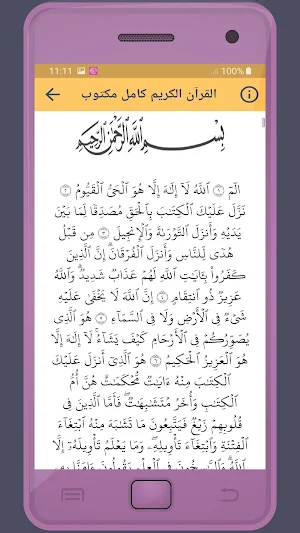 11:11
100%
القرآن الكريم كامل مكتوب
بِسْمِ اللَّهِ الرَّحْمَٰنِ الرَّحِيمِ
الٓمٓ ۝١ ٱللَّهُ لَآ إِلَٰهَ إِلَّا هُوَ ٱلْحَىُّ ٱلْقَيُّومُ ۝٢
نَزَّلَ عَلَيْكَ ٱلْكِتَٰبَ بِٱلْحَقِّ مُصَدِّقًا لِّمَا بَيْنَ
يَدَيْهِ وَأَنزَلَ ٱلتَّوْرَىٰةَ وَٱلْإِنجِيلَ ۝٣ مِن قَبْلُ
هُدًى لِّلنَّاسِ وَأَنزَلَ ٱلْفُرْقَانَ ۗ إِنَّ ٱلَّذِينَ
كَفَرُوا۟ بِـَٔايَٰتِ ٱللَّهِ لَهُمْ عَذَابٌ شَدِيدٌ ۗ وَٱللَّهُ
عَزِيزٌ ذُو ٱنتِقَامٍ ۝٤ إِنَّ ٱللَّهَ لَا يَخْفَىٰ عَلَيْهِ
شَىْءٌ فِى ٱلْأَرْضِ وَلَا فِى ٱلسَّمَآءِ ۝٥ هُوَ ٱلَّذِى
يُصَوِّرُكُمْ فِى ٱلْأَرْحَامِ كَيْفَ يَشَآءُ ۚ لَآ إِلَٰهَ إِلَّا
هُوَ ٱلْعَزِيزُ ٱلْحَكِيمُ ۝٦ هُوَ ٱلَّذِىٓ أَنزَلَ عَلَيْكَ
ٱلْكِتَٰبَ مِنْهُ ءَايَٰتٌ مُّحْكَمَٰتٌ هُنَّ أُمُّ
ٱلْكِتَٰبِ وَأُخَرُ مُتَشَٰبِهَٰتٌ ۖ فَأَمَّا ٱلَّذِينَ فِى
قُلُوبِهِمْ زَيْغٌ فَيَتَّبِعُونَ مَا تَشَٰبَهَ مِنْهُ ٱبْتِغَآءَ
ٱلْفِتْنَةِ وَٱبْتِغَآءَ تَأْوِيلِهِۦ ۗ وَمَا يَعْلَمُ تَأْوِيلَهُۥٓ إِلَّا
ٱللَّهُ ۗ وَٱلرَّٰسِخُونَ فِى ٱلْعِلْمِ يَقُولُونَ ءَامَنَّا بِهِۦ